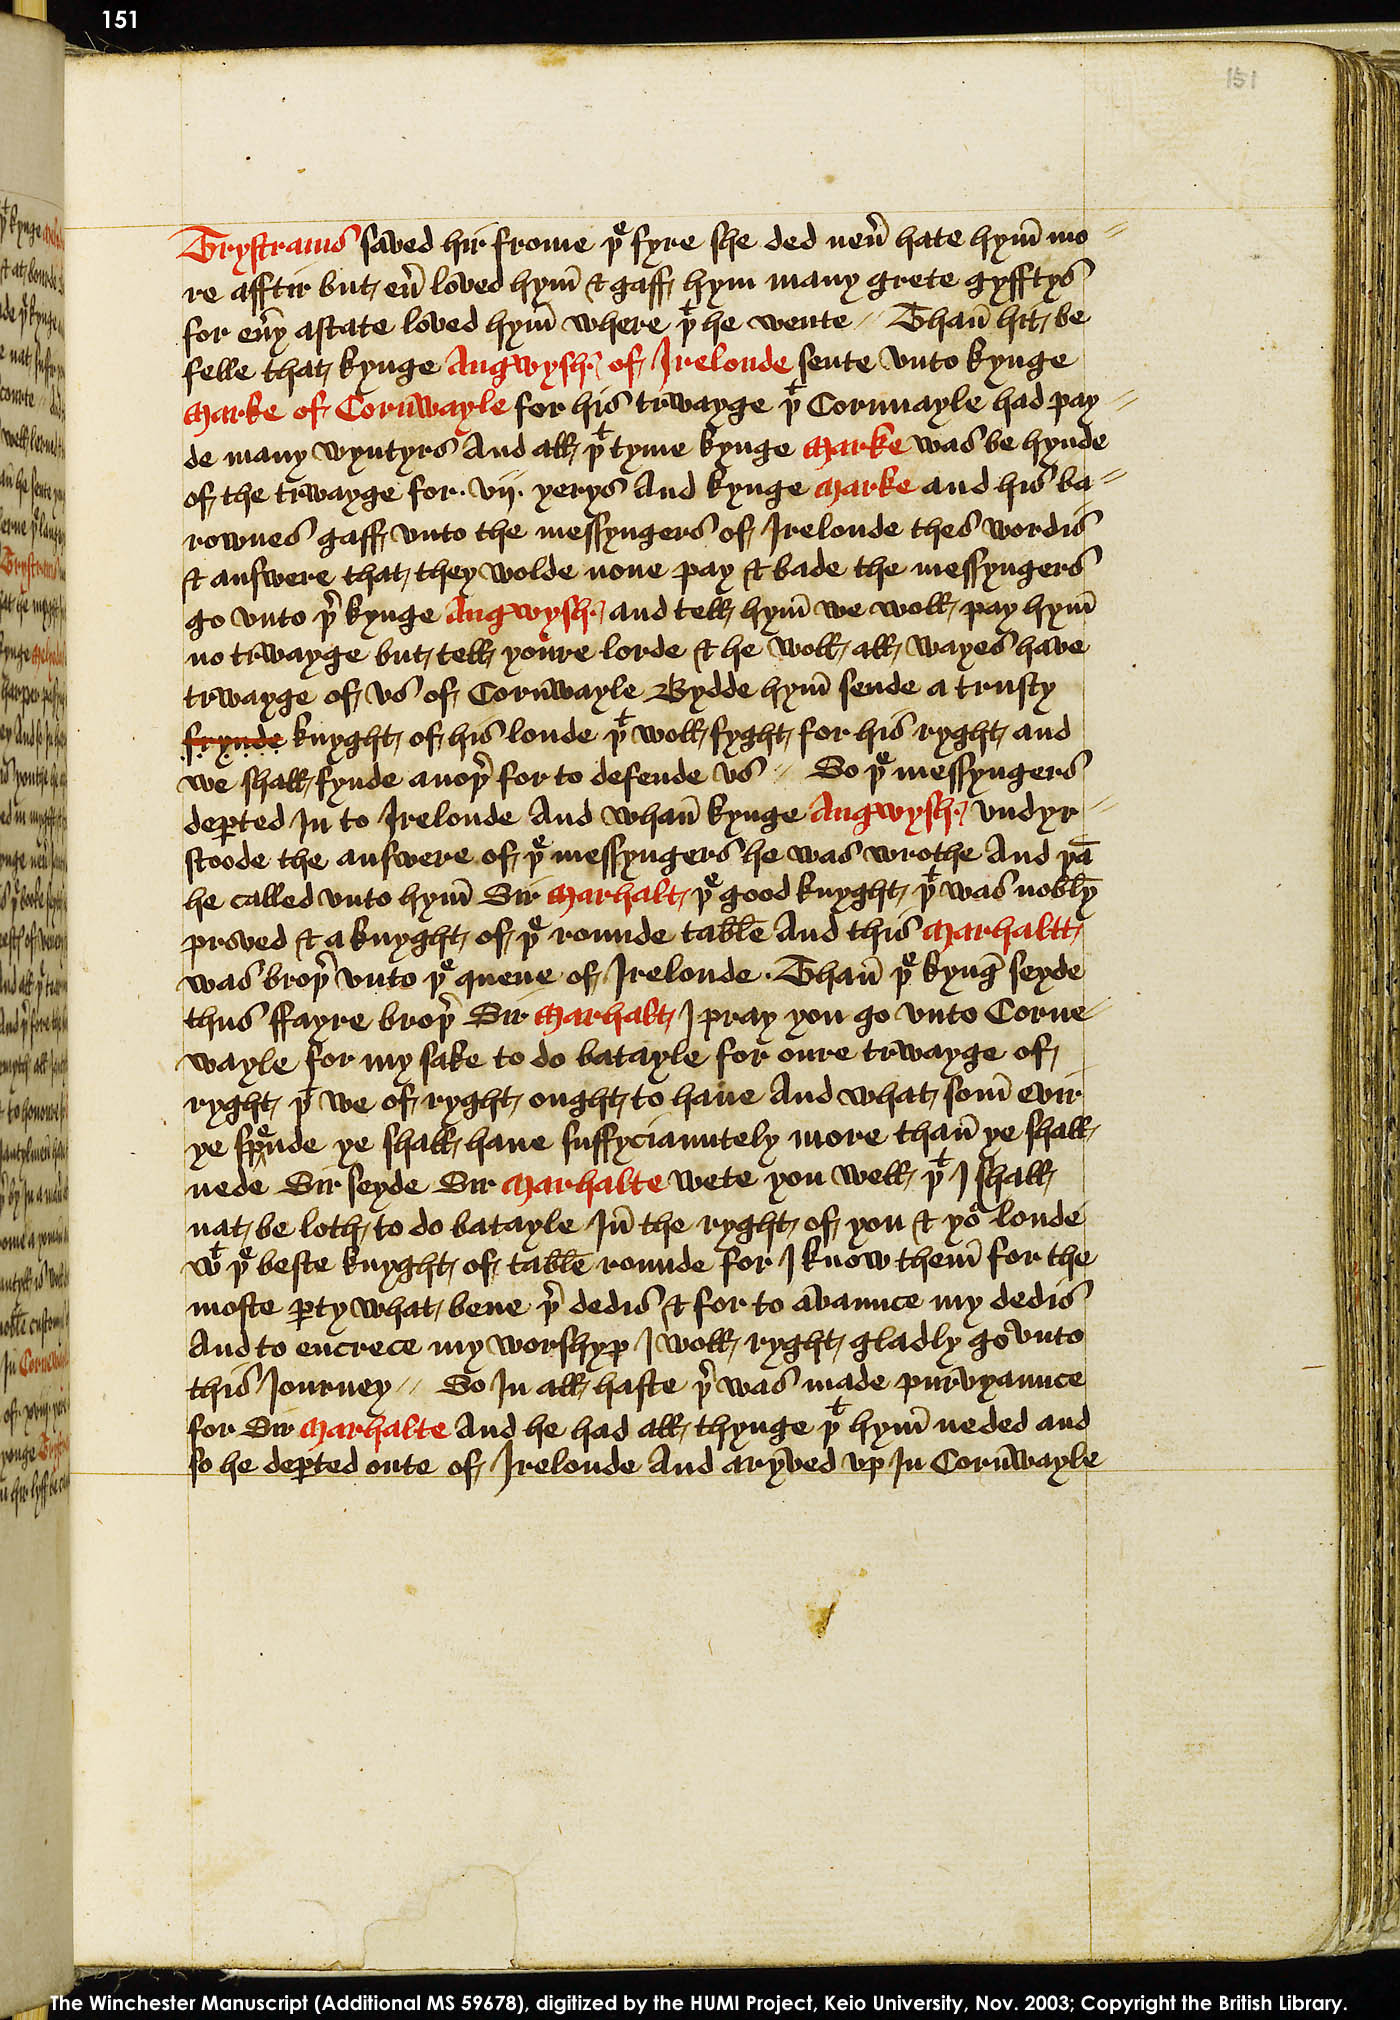 151
151
Trystrams saved hir frome þe fyre she ded neũ hate hym̃ mo
re afftir but eũ loved hym̃ & gaff hym many grete gyfftys
for eũy astate loved hym̃ where þt he wente // Than̄ hit be
felle that kynge Angwysh· of Irelonde sente vnto kynge
Marke of Corn̄wayle for his trwayge þt Cornuayle had pay
de many wyntyrs And all þt tyme kynge Marke was be hynde
of the trwayge for · vij · yerys And kynge Marke and his ba
rownes gaff vnto the messyngers of Irelonde thes wordis
& answere that they wolde none pay & bade the messyngers
go vnto þr kynge Angwysh· and tell hym̃ we woll pay hym̃
no trwayge but tell youre lorde & he woll all wayes have
trwayge of vs of Corn̄wayle Bydde hym̃ sende a trusty
frynde knyght of his londe þt woll fyght for his ryght and
we shall fynde anoþr for to defende vs // So þe messyngers
deꝑted In to Irelonde And whan̄ kynge Angwysh· vndyr
stoode the answere of þe messyngers he was wrothe And þā
he called vnto hym̃ Sir Marhalt þe good knyght þt was nobly
proved & a knyght of þe rounde table And this Marhaltt
was broþr vnto þe quene of Irelonde · Than̄ þe kynḡ seyde
thus ffayre broþr Sir Marhalt I pray you go vnto Corne
wayle for my sake to do batayle for oure trwayge of
ryght þt we of ryght ought to haue And what som̃ evir
ye spende ye shall haue suffycianntely more than̄ ye shall
nede Sir seyde Sir Marhalte wete you well þt I shall
nat be loth to do batayle In̄ the ryght of you & yor londe
wt þe beste knyght of table rounde for I know them̃ for the
moste ꝑty what bene þr dedis & for to avaunce my dedis
And to encrece my worshyp I woll ryght gladly go vnto
this Journey // So In all haste þr was made purvyaunce
for Sir Marhalte And he had all thynge þt hym̃ neded and
so he deꝑted oute of Irelonde And aryved vp In Corn̄wayle
The Winchester Manuscript (Additional MS 59678), digitized by the HUMI Project, Keio University, Nov. 2003; Copyright the British Library.